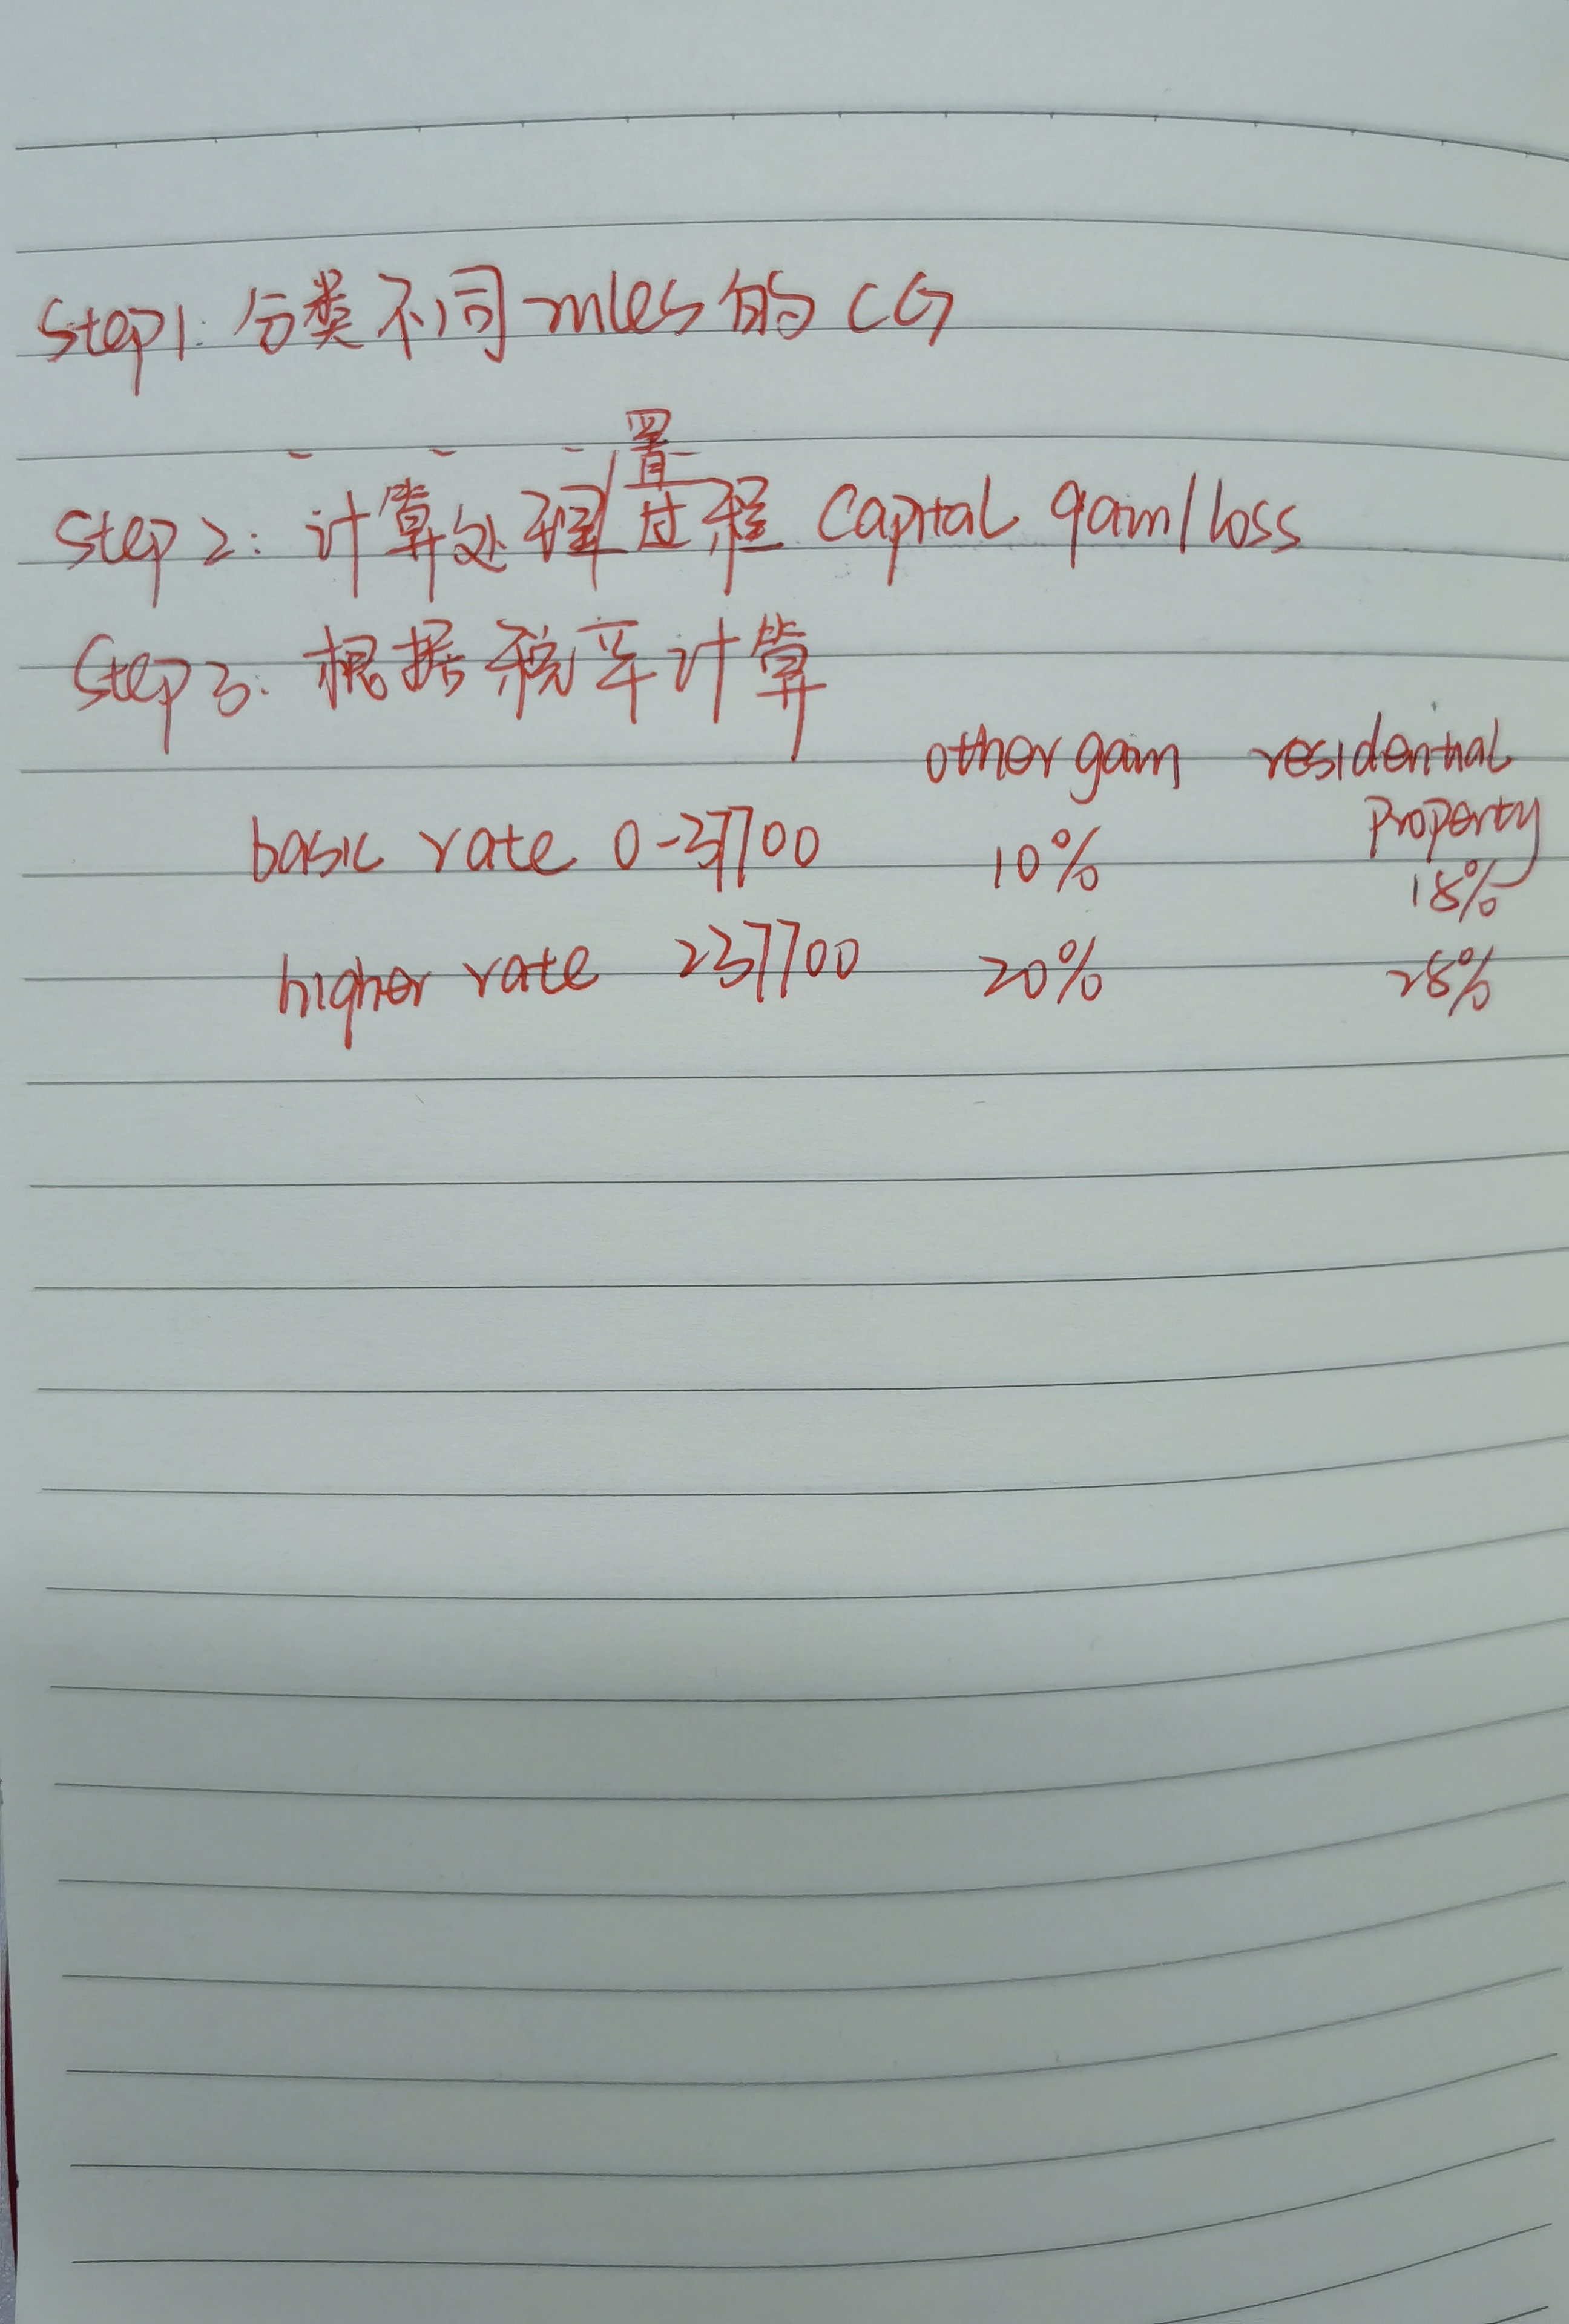 Step1: 分类不同 rules 的 CG
置
Step 2: 计算处理/过程 Capital gain/loss
Step 3: 根据税率计算
other gain residential
property
basic rate 0-37700 10% 18%
higher rate ≥37700 20% 28%